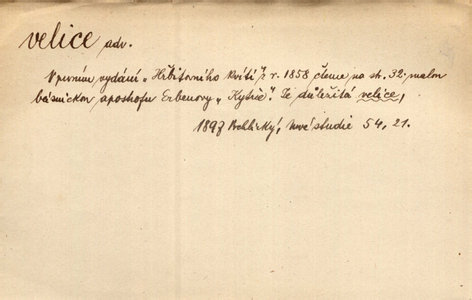 velice adv.
V prvním vydání „Hřbitovního kvítí“ z r. 1858 čteme na str. 32. malou
básnickou apostrofu Erbenovy „Kytice“. Je důležitá velice,
1897 Vrchlický, Nové studie 54, 21.